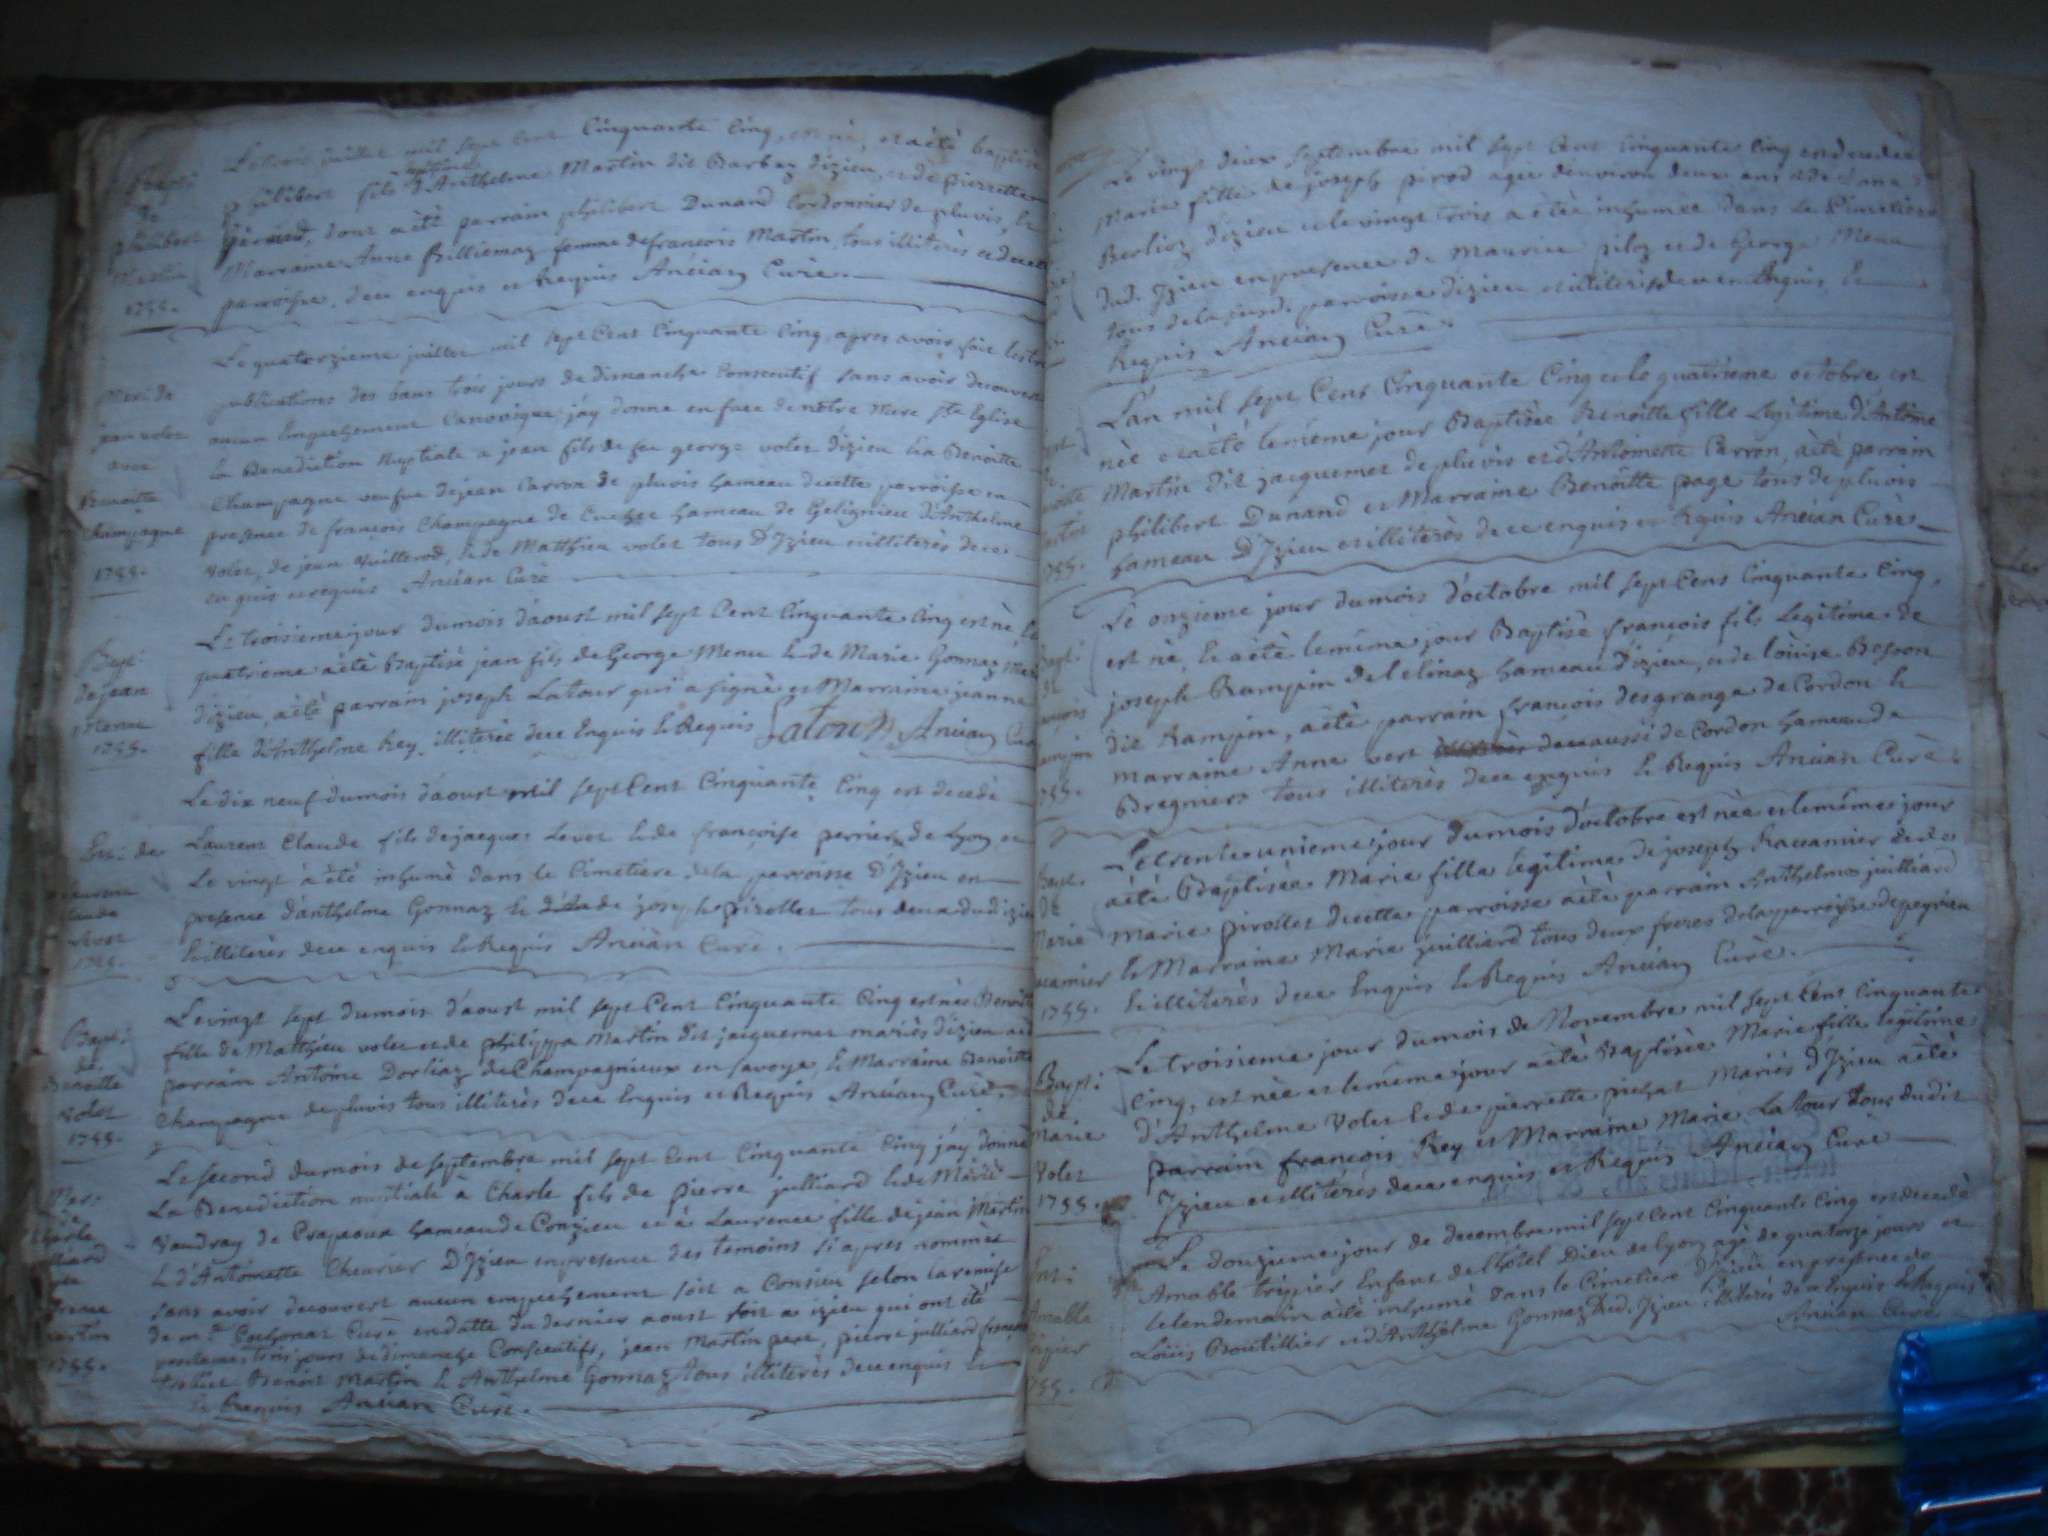 Bapt:
de
philibert
Martin
1755.
juillet mil sept cent Cinquante Cinq, est né, et a été baptisé
philibert fils d'Anthelme Martin dit Barbaz d'izieu, et de pierrette
dont a été parrain philibert Dunand Cordonnier de pluvis, et
Marraine Anne Billiemaz femme de françois Martin, tous illiterés de cette
parroisse, de ce enquis et Requis Ancian Curé.
Mari: de
jean volet
avec
Benoitte
Champagne
1755.
Le quatorzieme juillet mil sept Cent Cinquante Cinq, apres avoir fait les trois
publications des bans trois jours de dimanche Consecutif sans avoir decouvert
aucun Empechement Canonique, j'ay donné en face de nôtre Mere ste Eglise
la Benediction Nuptiale a jean fils de feu george volet d'izieu Et a Benoitte
Champagne veufve de jean Carron de pluvis hameau de cette parroisse en
presence de françois Champagne de Cuchet hameau de Gelignieu d'Anthelme
volet, de jean Vuillerod, & de Matthieu volet tous D'Izieu et illiterés de ce
enquis et requis Ancian Curé
Bapt:
de jean
Menu
1755.
Le troisieme jour du mois d'aoust mil sept Cent Cinquante Cinq est né, le
quatrieme a été Baptisé jean fils de George Menu & de Marie Gonnaz
d'izieu, a été parrain joseph Latour qui a signé et Marraine jeanne
fille d'Anthelme Rey, illiterée de ce Enquis & Requis Latour Ancian Curé
Ent: de
Laurent
Claude
1755.
Le dix neuf du mois d'aoust mil sept Cent Cinquante Cinq est decedé
Laurent Claude fils de jacques Levet & de françoise perrier de Lyon et
Le vingt a été inhumé dans le Cimetiere de la parroisse D'Izieu en
presence d'anthelme Gonnaz & de joseph pirollet tous deux dud izieu
& illiterés de ce enquis & Requis Ancian Curé.
Bapt:
de
Benoitte
volet
1755.
Le vingt sept du mois d'aoust mil sept Cent Cinquante Cinq est née Benoitte
fille de Matthieu volet et de philippa Martin dit jacquemet mariés d'izieu
parrain Antoine Dorliaz de Champagnieux en savoye, & Marraine Benoitte
Champagne de pluvis tous illiterés de ce Enquis et Requis Ancian Curé.
Mar:
de
Charle
Martin
1755.
Le second du mois de septembre mil sept Cent Cinquante Cinq j'ay donné
La Benediction nuptiale à Charle fils de Pierre julliard & de Marie
Vaudray de Crapeoux hameau de Conzieu et à Laurence fille de jean Martin
& d'Antoinette Chevrier D'Izieu en presence des temoins si apres nommés
sans avoir decouvert aucun empechement soit a Consieu selon la remise
de mr. Curé en datte du dernier aoust soit a izieu qui ont été
trois jours de dimanche Consecutifs, jean Martin pere, pierre julliard
Benoit Martin & Anthelme Gonnaz tous illiterés de ce enquis &
& Requis Ancian Curé.
Le vingt deux septembre mil sept Cent Cinquante Cinq est decedée
Marie fille de joseph pirod agée d'environ deux ans et de
Berlioz d'izieu et le vingt trois a étée inhumée dans le Cimetiere
dud. Izieu en presence de Maurice piloz et de George Menu
tous de la susd. parroisse d'izieu et illiterés de ce Enquis &
Requis Ancian Curé.
1755.
L'an mil sept Cent Cinquante Cinq et le quatrieme octobre est
née et a été le même jour Baptisée Benoitte fille Legitime d'Antoine
Martin dit jacquemet de pluvis et d'Antoinette Carron, a été parrain
philibert Dunand et Marraine Benoitte page tous de pluvis
hameau D'Izieu et illiterés de ce enquis et Requis Ancian Curé
Bapt:
de
françois
Rampin
1755.
Le onzieme jour du mois d'octobre mil sept Cent Cinquante Cinq,
est né, & a été le même jour Baptisé françois fils Legitime de
joseph Rampin de l'elinaz hameau d'izieu, et de loüise Besson
dit Rampin, a été parrain françois desgrange de Cordon &
Marraine Anne vert aussi de Cordon hameau de
Bregnier tous illiterés de ce enquis & Requis Ancian Curé.
Bapt.
de
Marie
1755.
Le trente unieme jour du mois d'octobre est née et le même jour
a été Baptisée Marie fille legitime de joseph Raccamier et de
Marie pirollet de cette parroisse a été parrain Anthelme juilliard
& Marraine Marie juilliard tous deux freres de la parroisse de peyrieu
& illiterés de ce Enquis & Requis Ancian Curé.
Bapt:
de
Marie
Volet
1755.
Le troisieme jour du mois de Novembre mil sept Cent Cinquante
Cinq, est née et le même jour a été Baptisée Marie fille legitime
d'Anthelme Volet & de pierrette pichat Mariés D'Izieu a été
parrain françois Rey et Marraine Marie Latour tous dudit
Izieu et illiterés de ce enquis et Requis Ancian Curé
Ent:
Amable
1755.
Le douzieme jour de decembre mil sept Cent Cinquante Cinq est decedé
Amable trippier Enfant de l'hôtel Dieu de Lyon agé de quatorze jours et
le lendemain a été inhumé dans le Cimetiere D'izieu en presence de
Loüis Boutillier et d'Anthelme Gonnaz dud. Izieu illiterés de ce Enquis & Requis
Ancian Curé